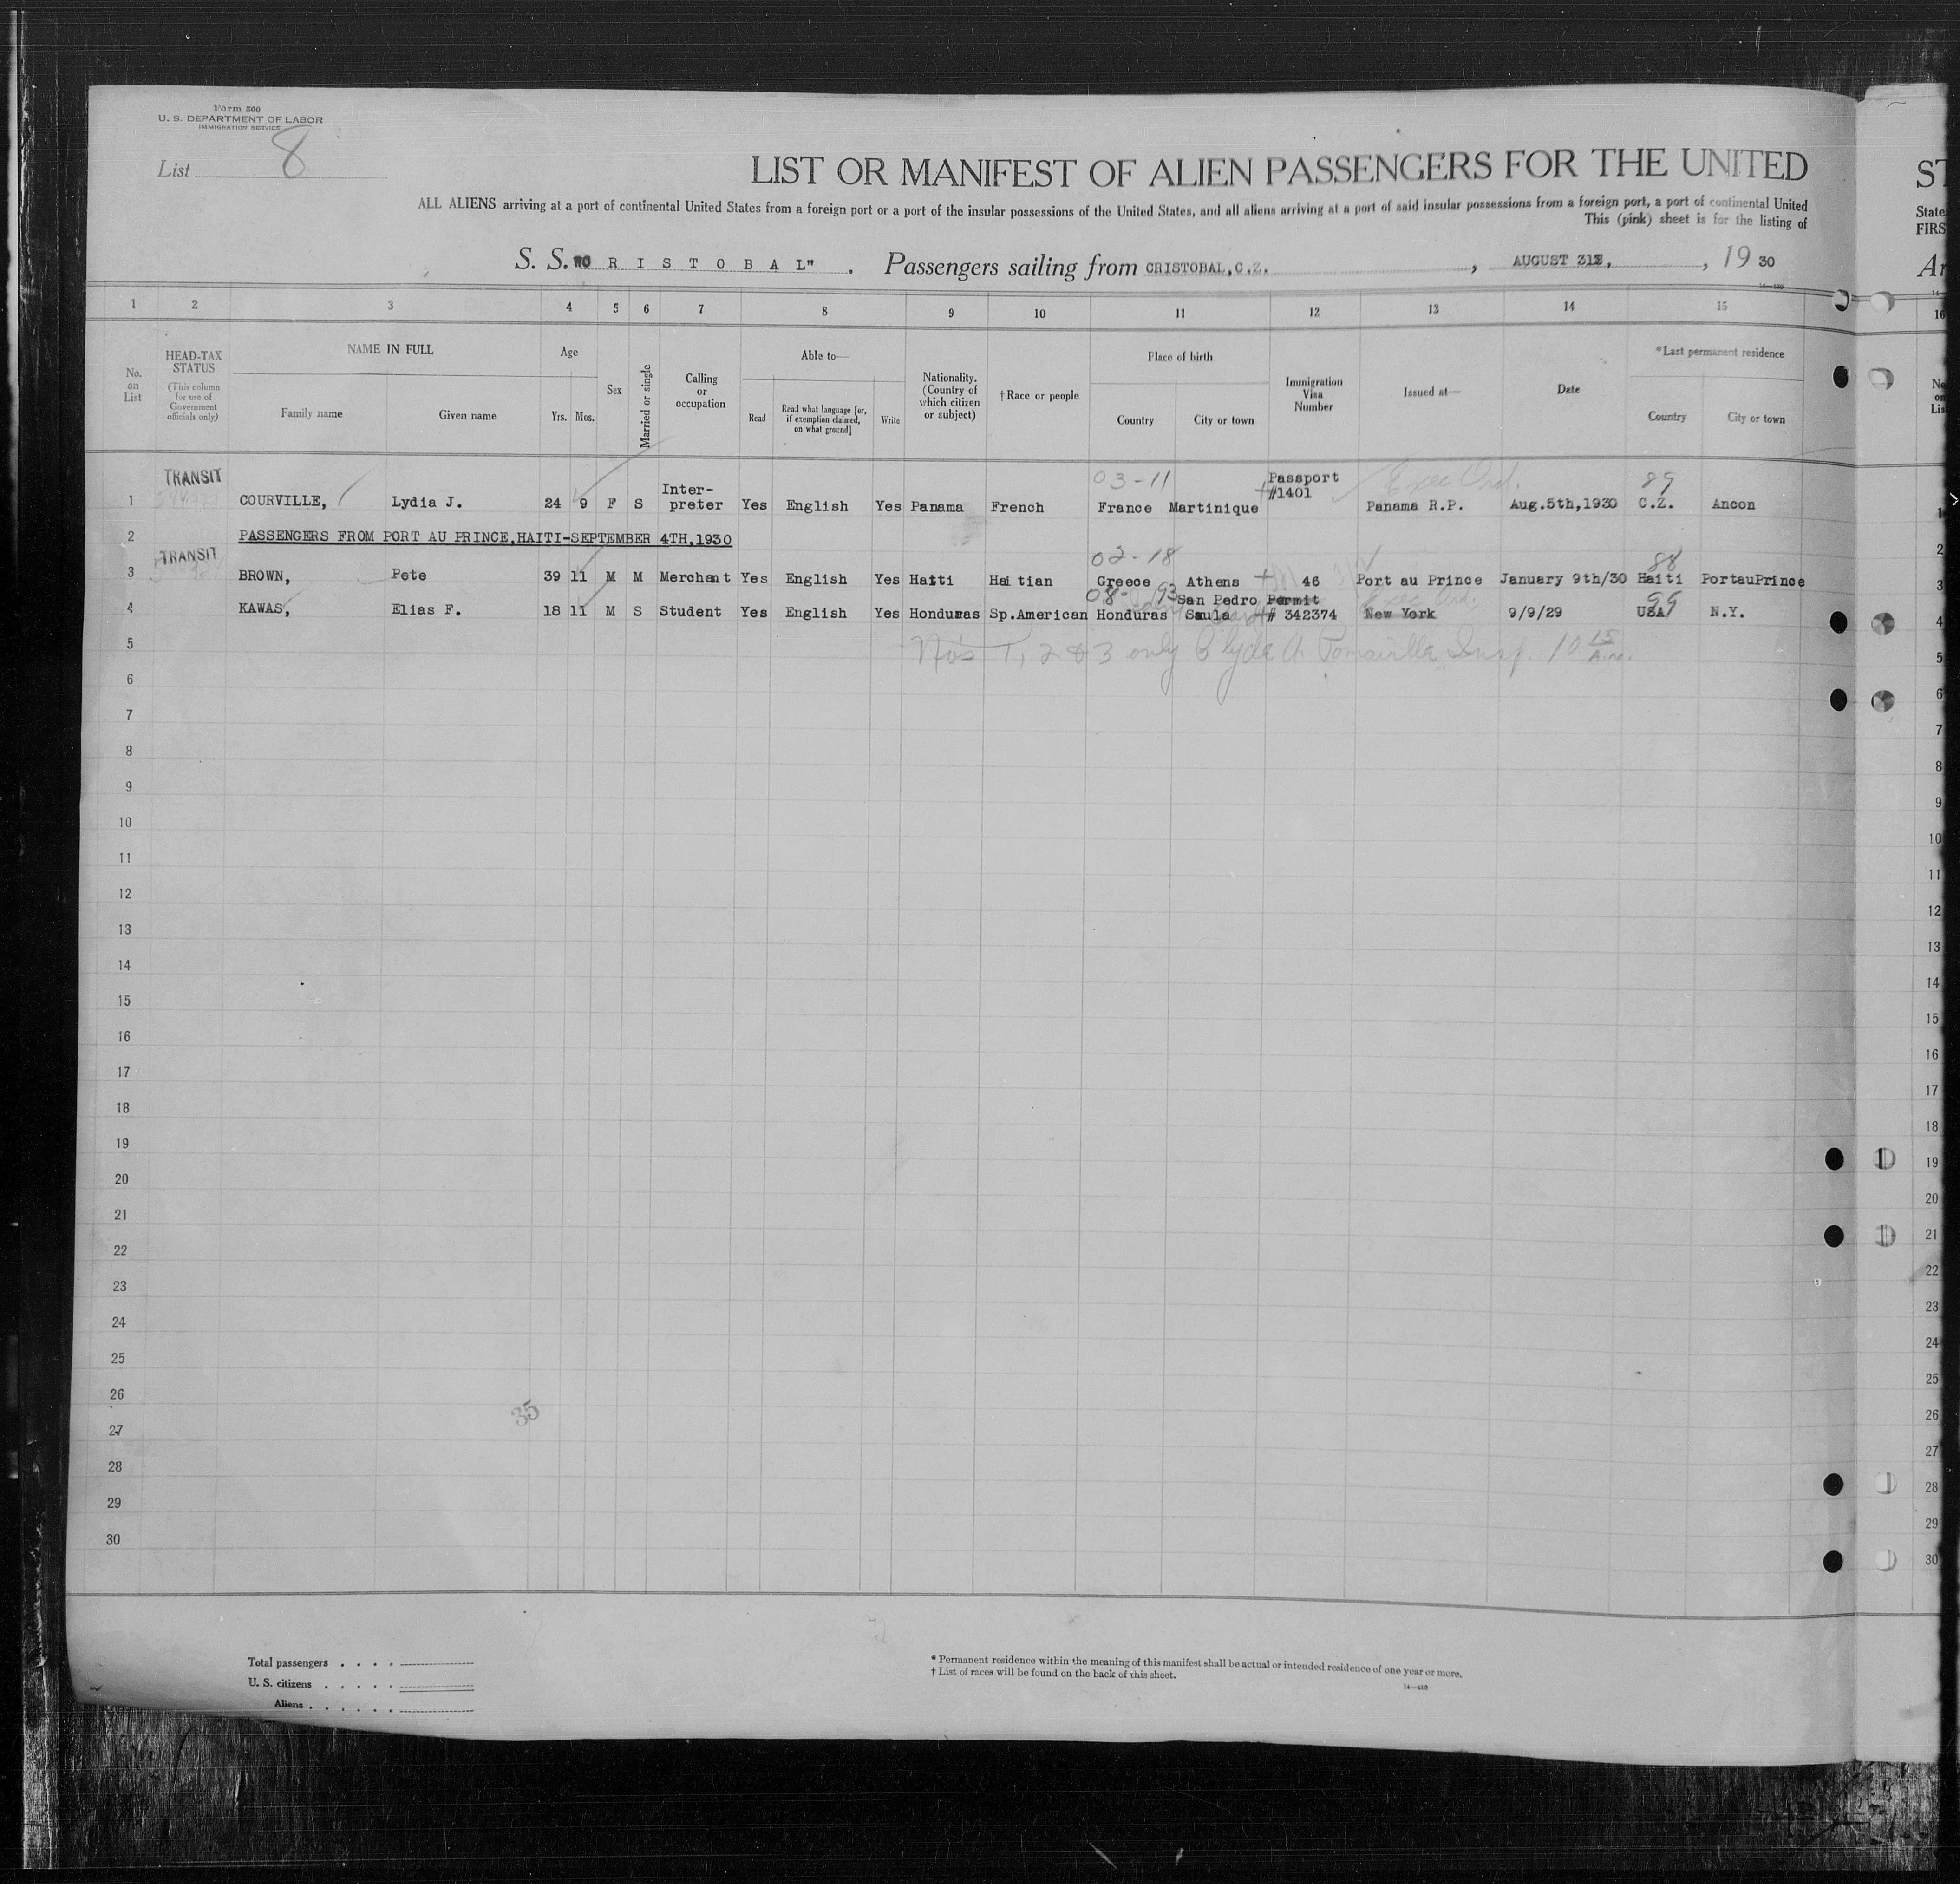 Form 500
U. S. DEPARTMENT OF LABOR
IMMIGRATION SERVICE
List 8
LIST OR MANIFEST OF ALIEN PASSENGERS FOR THE UNITED
ST
ALL ALIENS arriving at a port of continental United States from a foreign port or a port of the insular possessions of the United States, and all aliens arriving at a port of said insular possessions from a foreign port, a port of continental United
State
This (pink) sheet is for the listing of
FIRS
S. S. "C R I S T O B A L" . Passengers sailing from CRISTOBAL,C.Z. , AUGUST 31, , 19 30
Ar
14—430
1 2 3 4 5 6 7 8 9 10 11 12 13 14 15 16
No. on List
HEAD-TAX STATUS
(This column for use of Government officials only)
NAME IN FULL
Family name Given name
Age
Yrs. Mos.
Sex
Married or single
Calling or occupation
Able to—
Read
Read what language [or, if exemption claimed, on what ground]
Write
Nationality. (Country of which citizen or subject)
†Race or people
Place of birth
Country City or town
Immigration Visa Number
Issued at—
Date
*Last permanent residence
Country City or town
No on Lis
TRANSIT 03-11 Passport Exec Ord. 89
1 COURVILLE, Lydia J. 24 9 F S Inter-preter Yes English Yes Panama French France Martinique #1401 Panama R.P. Aug.5th,1930 C.Z. Ancon 1
2 PASSENGERS FROM PORT AU PRINCE,HAITI-SEPTEMBER 4TH,1930 2
TRANSIT 02-18 88
3 BROWN, Pete 39 11 M M Merchant Yes English Yes Haiti Haitian Greece Athens 46 Port au Prince January 9th/30 Haiti PortauPrince 3
08-93 San Pedro Permit Exec Ord. 99
4 KAWAS, Elias F. 18 11 M S Student Yes English Yes Honduras Sp.American Honduras Saula # 342374 New York 9/9/29 USA N.Y. 4
5 No's 1, 2 & 3 only Clyde Insp. 10 15 A.m. 5
6 6
7 7
8 8
9 9
10 10
11 11
12 12
13 13
14 14
15 15
16 16
17 17
18 18
19 19
20 20
21 21
22 22
23 23
24 24
25 25
26 26
35
27 27
28 28
29 29
30 30
Total passengers . . . .
U. S. citizens . . . . .
Aliens . . . . . .
* Permanent residence within the meaning of this manifest shall be actual or intended residence of one year or more.
† List of races will be found on the back of this sheet.
14—430